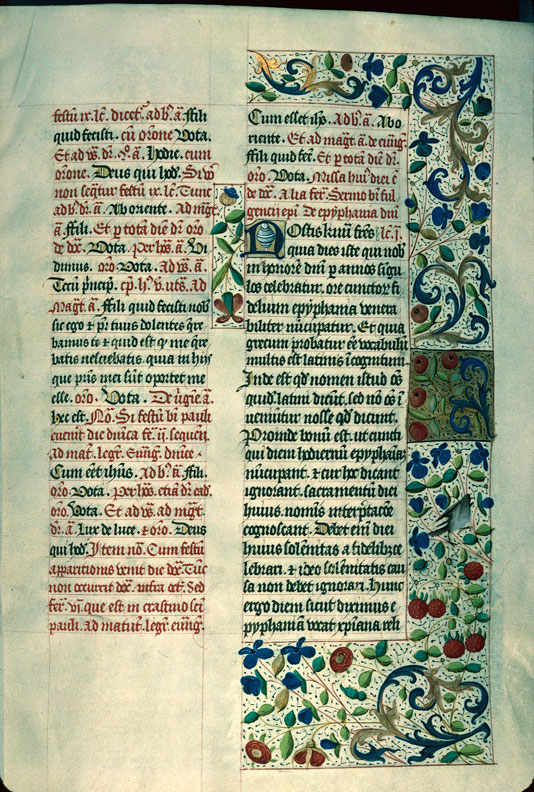 festū ix. lc̄. dicet᷑. ad bꝰ. ā. ffili
quid fecisti. cū orone Vota.
Et ad Hodie. cum
orone. Deus qui hod᷑. Si
non seq̄tur festū ix. lc̄. Tunc
ad b dr̄. ā. Ab oriente. Ad mag̅t.
ā. ffili. Et p totā diē dr̄ oro
de dc̄a. Vota. Per hꝰ. ā. Vi
dimus. oro Vota. Ad ā.
Tecū p̄ncip. cp̄. hꝰ. v̄. ut s̄. Ad
Mag̅t. ā. ffili quid fecisti nob
sic ego ⁊ pr̄ tuus dolentes q̄re
bamus te ⁊ quid est qꝫ me q̄re
batis nesciebatis. quia in hijs
que pr̄is mei sūt oportet me
esse. oro. Vota. De ā.
hec est. No. Si festū bi pauli
euen̄it die dn̄ica seq̄uen
ad mat. leg᷑. Euāg. dn̄ice.
Cum eēt ihūs. Ad bꝰ. ā. ffili.
oro. Vota. Per hꝰ. etiā dr̄ ead᷑.
oro. Vota. Et ad ad mag̅t.
dr̄. ā. Lux de luce. ⁊ oro. Deus
qui hod᷑. Item no. Cum festū
apparitionis venit die Tūc
non occurrit infra oct. Sed
fer̄. vj. que est in crastino sc̄i
pauli. Ad matut̄. leg᷑. euāg.
Cum esset ihs. Ad bꝰ. ā. Abo
riente. Et ad mag̅t. ā. de euāg.
ffili quid fec̄. Et p totā diē dr̄.
oro. Vota. Missa huiꝰ diei ē
de Alia fer̄. Sermo bi ful
gencij ep̄i De epyphania dn̄i
Nostis kmī fr̄es lc̄. i.
quia dies iste qui nob
in honorē dn̄i p annos sīgu
los celebratur. ore cunctoꝝ fi
delium epyphania venera
biliter nūcupatur. Et quia
grecum probatur eē vocabulū
multis est latinis īcognitum
Inde est qd nomen istud oēs
quidē latini dicūt. sed nō oēs ī
ueniūtur nosse qd dicunt.
Proinde bonū est. ut cuncti
qui diem hodiernū epyphaniā
nūcupant. ⁊ cur hec dicant
ignorant. sacramentū diei
huius. nomīs īterptacōe
cognoscant. Debet enī diei
huius solēnitas a fidelibꝫ ce
lebrari. ⁊ ideo solēnitatis cau
sa non debet ignorari. Hunc
ergo diem sicut diximus e
pyphaniā vocat xpīana reli